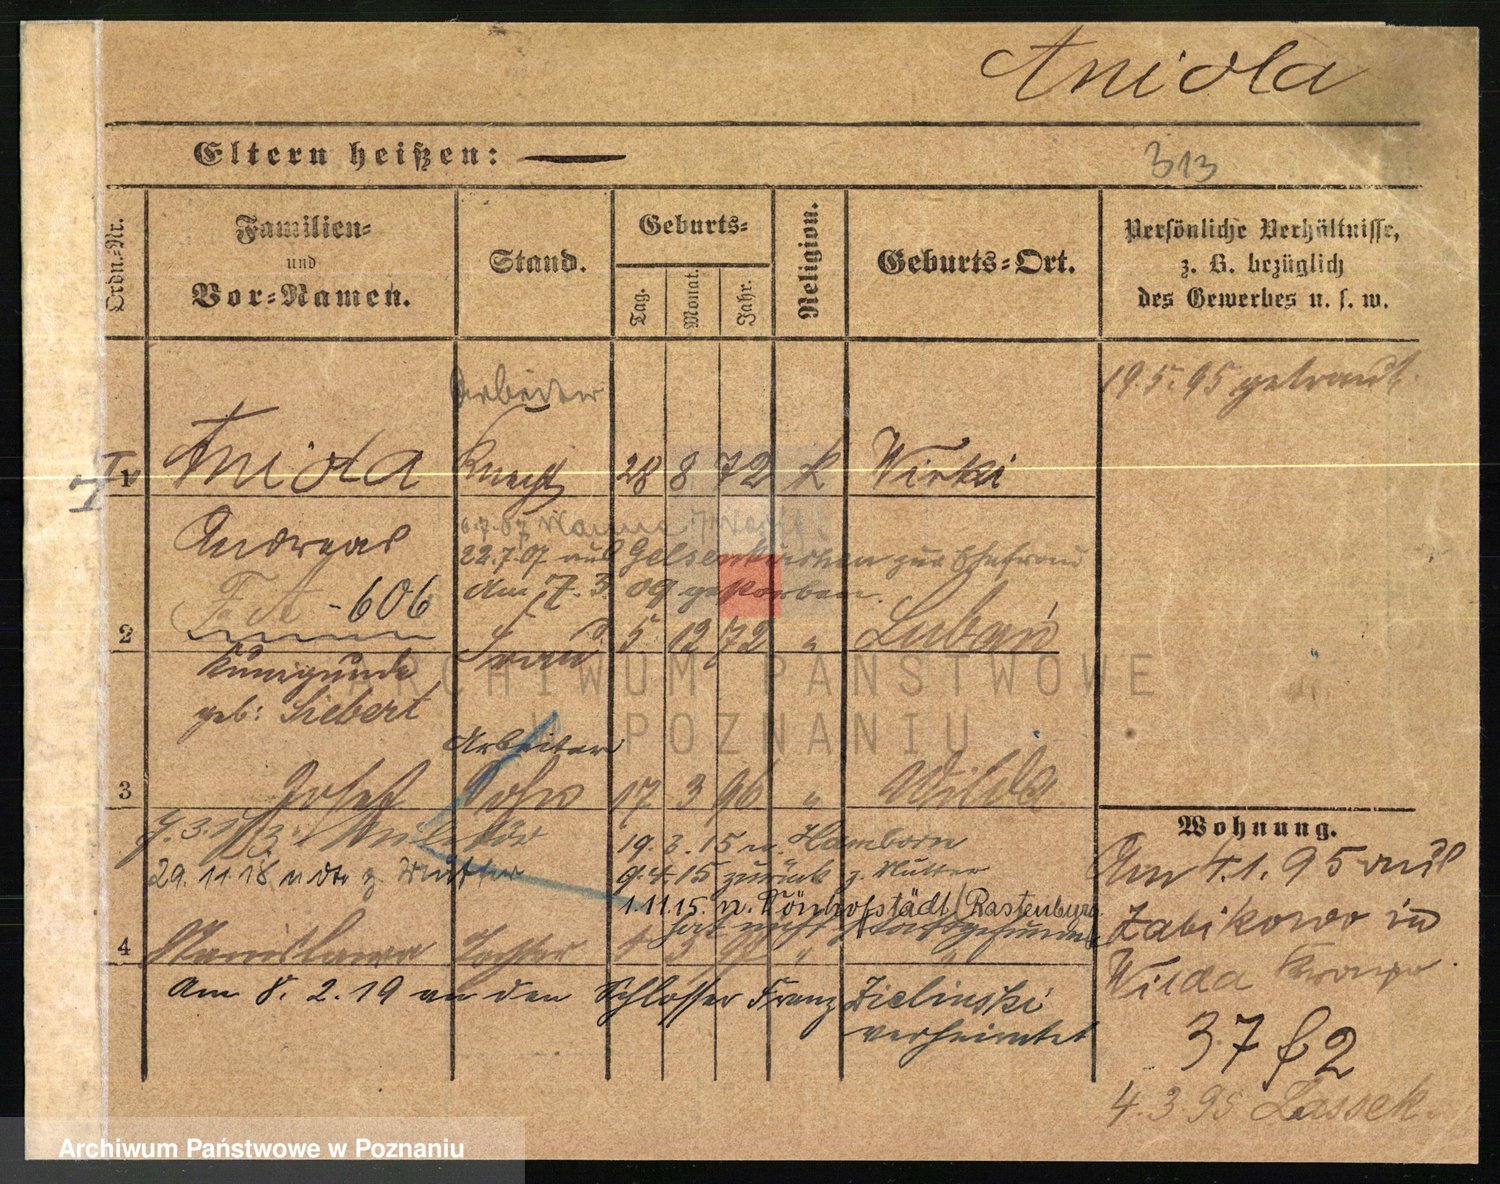 Aniola
Eltern heißen:
313
Ordn.-Nr.
Familien-
und
Vor-Namen.
Stand.
Geburts-
Tag.
Monat.
Jahr.
Religion.
Geburts-Ort.
Persönliche Verhältnisse,
z. B. bezüglich
des Gewerbes u. s. w.
19.5.95 getraut.
Arbeiter
1 Aniola Knecht 28 8 72 k Wirki
Andreas
22.7.07 aus Gelsenkirchen zur Ehefrau
am 7.3.09 gestorben.
F.A -606
2 Frau 5 12 72 " Lubań
Kunigunde
geb: Siebert
Arbeiter
3 Josef Sohn 17 3 96 " Wilda
19.3.15 n. Hamborn
29.11.18 z. Mutter
9.4.15 zurück z. Mutter
1.11.15. n. Rastenburg
hat nicht stattgefunden
4 Stanislawa Tochter 3 "
Am 8.2.19 an den Schlosser Franz Zielinski
verheiratet
Wohnung.
Am 4.1.95 aus
Zabikowo in
Wilda
37 f 2
4.3.95 Lassek.
ARCHIWUM PAŃSTWOWE
W POZNANIU
Archiwum Państwowe w Poznaniu